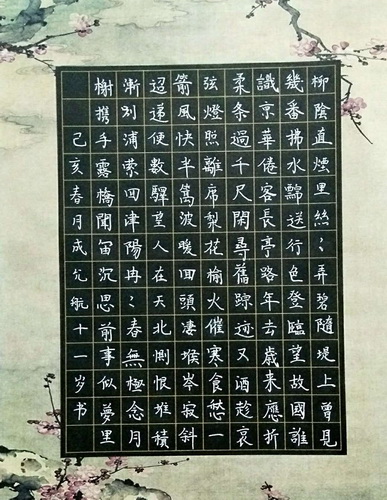 柳陰直煙里絲〻弄碧隨堤上曾見
幾番拂水送行色登臨望故國誰
識京華倦客長亭路年去歲来應折
柔条過千尺閑尋舊踪迹又酒趁哀
弦燈照離席梨花榆火催寒食悠一
箭風快半篙波暖回頭凄堠岑寂斜
迢递便數驛望人在天北惻恨堆積
漸別浦萦回津陽冉〻春無極念月
榭携手露橋聞笛沉思前事似夢里
己亥春月成允航十一岁书